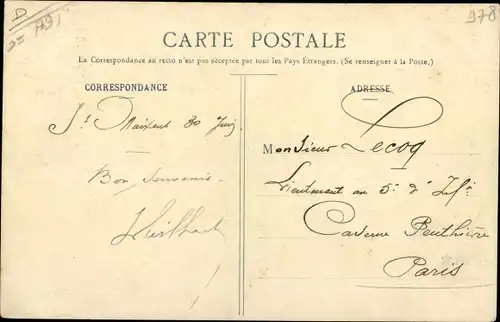 D
978
CARTE POSTALE
La Correspondance au recto n'est pas acceptée par tous les Pays Étrangers. (Se renseigner à la Poste.)
CORRESPONDANCE
St Maixent 30 Juin
Bon souvenir
ADRESSE
Monsieur Lecoq
Lieutenant au 5e d'Infie
Caserne Penthièvre
Paris